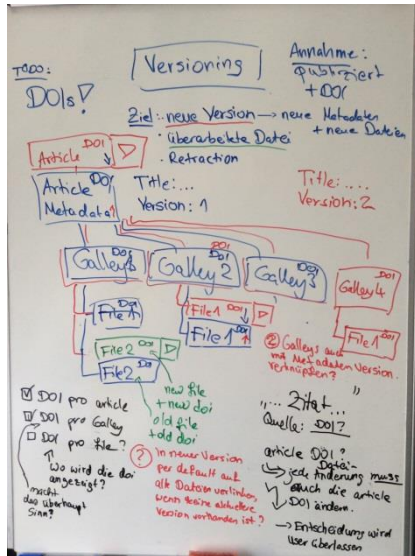 TODO:
DOIs!
Versioning
Annahme:
publiziert
+ DOI
Ziel: neue Version → neue Metadaten
+ neue Dateien
. überarbeitete Datei
. Retraction
Article DOI
Article DOI
Metadata
Title:...
Version: 1
Title:....
Version: 2
Galley 1 DOI
Galley 2 DOI
Galley 3 DOI
Galley 4 DOI
File 1 DOI
File 1 DOI
File 1 DOI
File 1 DOI
File 2 DOI
File 2 DOI
new file
+ new doi
old file
+ old doi
② Galleys auch
mit Metadaten Version
verknüpfen?
☑ DOI pro article
☑ DOI pro Galley
☐ DOI pro file?
Wo wird die doi
angezeigt?
macht
das überhaupt
Sinn?
? In neuer Version
per default auf
alte Dateien verlinken,
wenn keine aktuellere
Version vorhanden ist?
"... Zitat... "
Quelle: DOI?
article DOI?
Datei-
jede Änderung muss
auch die article
DOI ändern.
→ Entscheidung wird
user überlassen